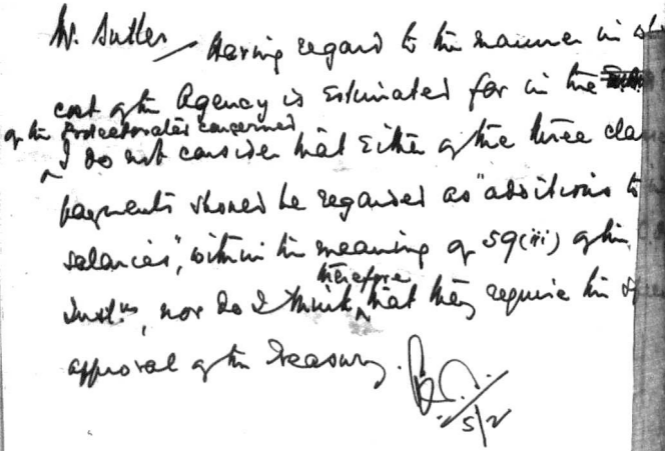 Mr. Butler
Having regard to the manner in
cost of the Agency is estimated for in the
of the Protectorates concerned
I do not consider that either of the three
payments should be regarded as "additions to
salaries", within the meaning of 59(iii) of the
Inst.ns, nor do I think therefore that they require the
approval of the Treasury.
5/2